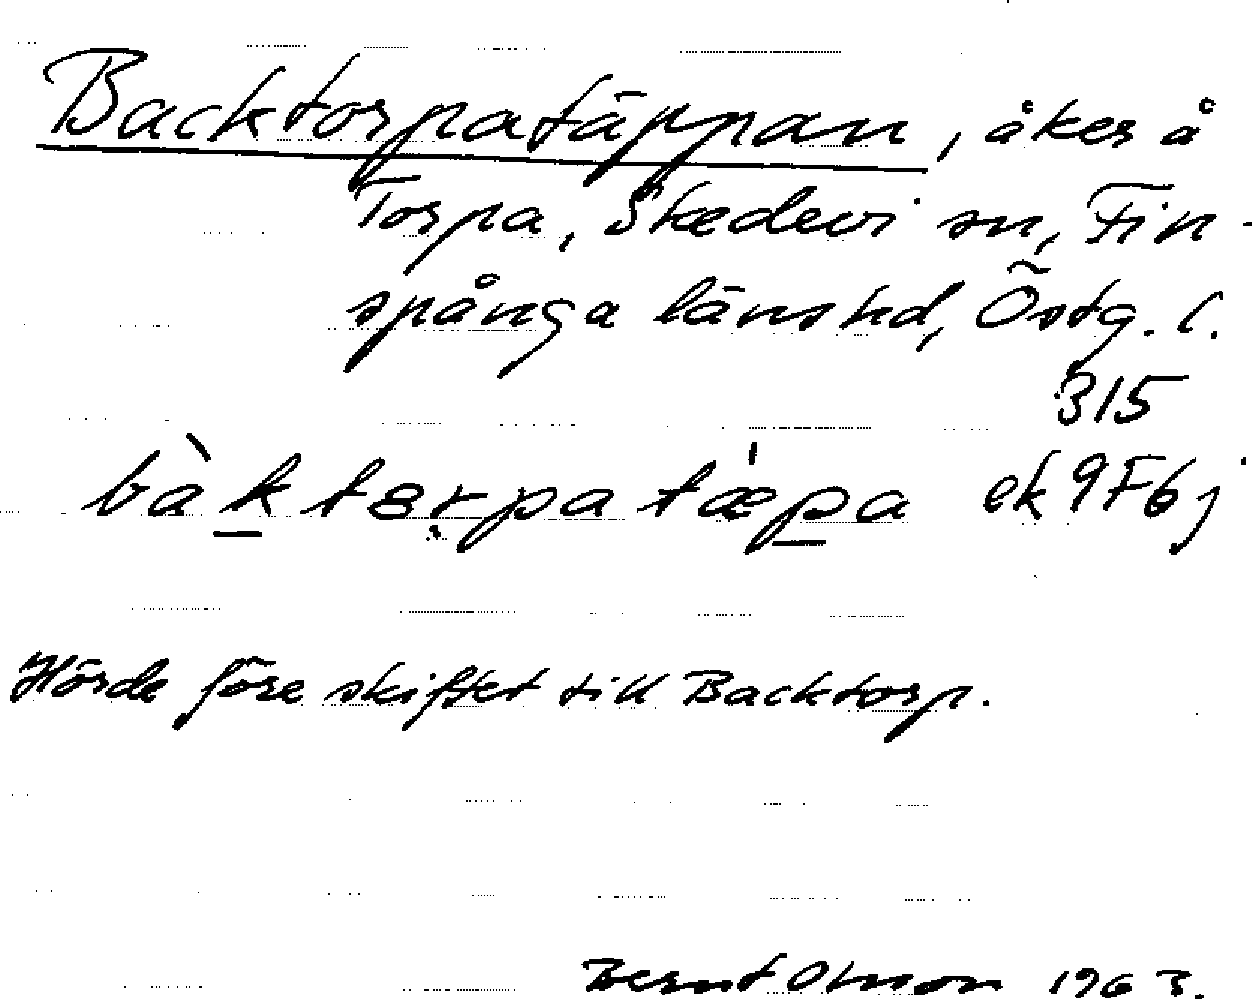 Backtorpatäppan, åker å
Torpa, Skedevi sn, Fin-
spånga länshd, Östg. l.
315
bàk tɵr̤pa tæ̍pa ek 9F6j
Hörde före skiftet till Backtorp.
Bernt Olsson 1963.